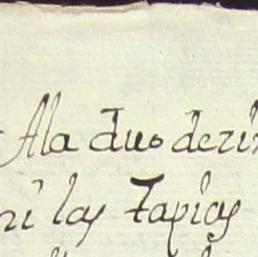 Ala duo dezi
ni las Tapias